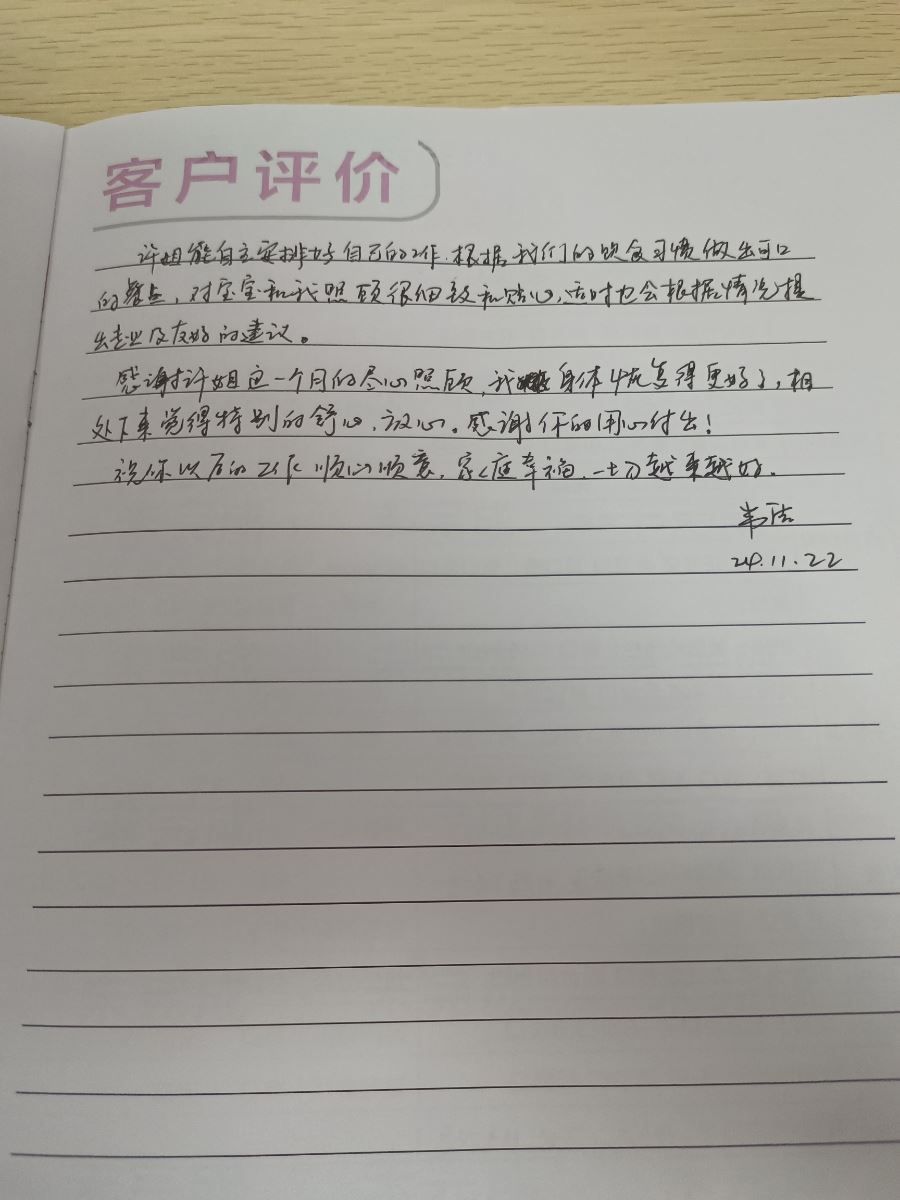 客户评价
许姐能自主安排好自己的工作.根据我们的饮食习惯做出可口
的餐点,对宝宝和我照顾很细致和贴心,适时也会根据情况提
出专业及友好的建议。
感谢许姐这一个月的尽心照顾,我身体恢复得更好了,相
处下来觉得特别的舒心、放心。感谢你的用心付出!
祝你以后的工作顺心顺意,家庭幸福,一切越来越好.
24.11.22